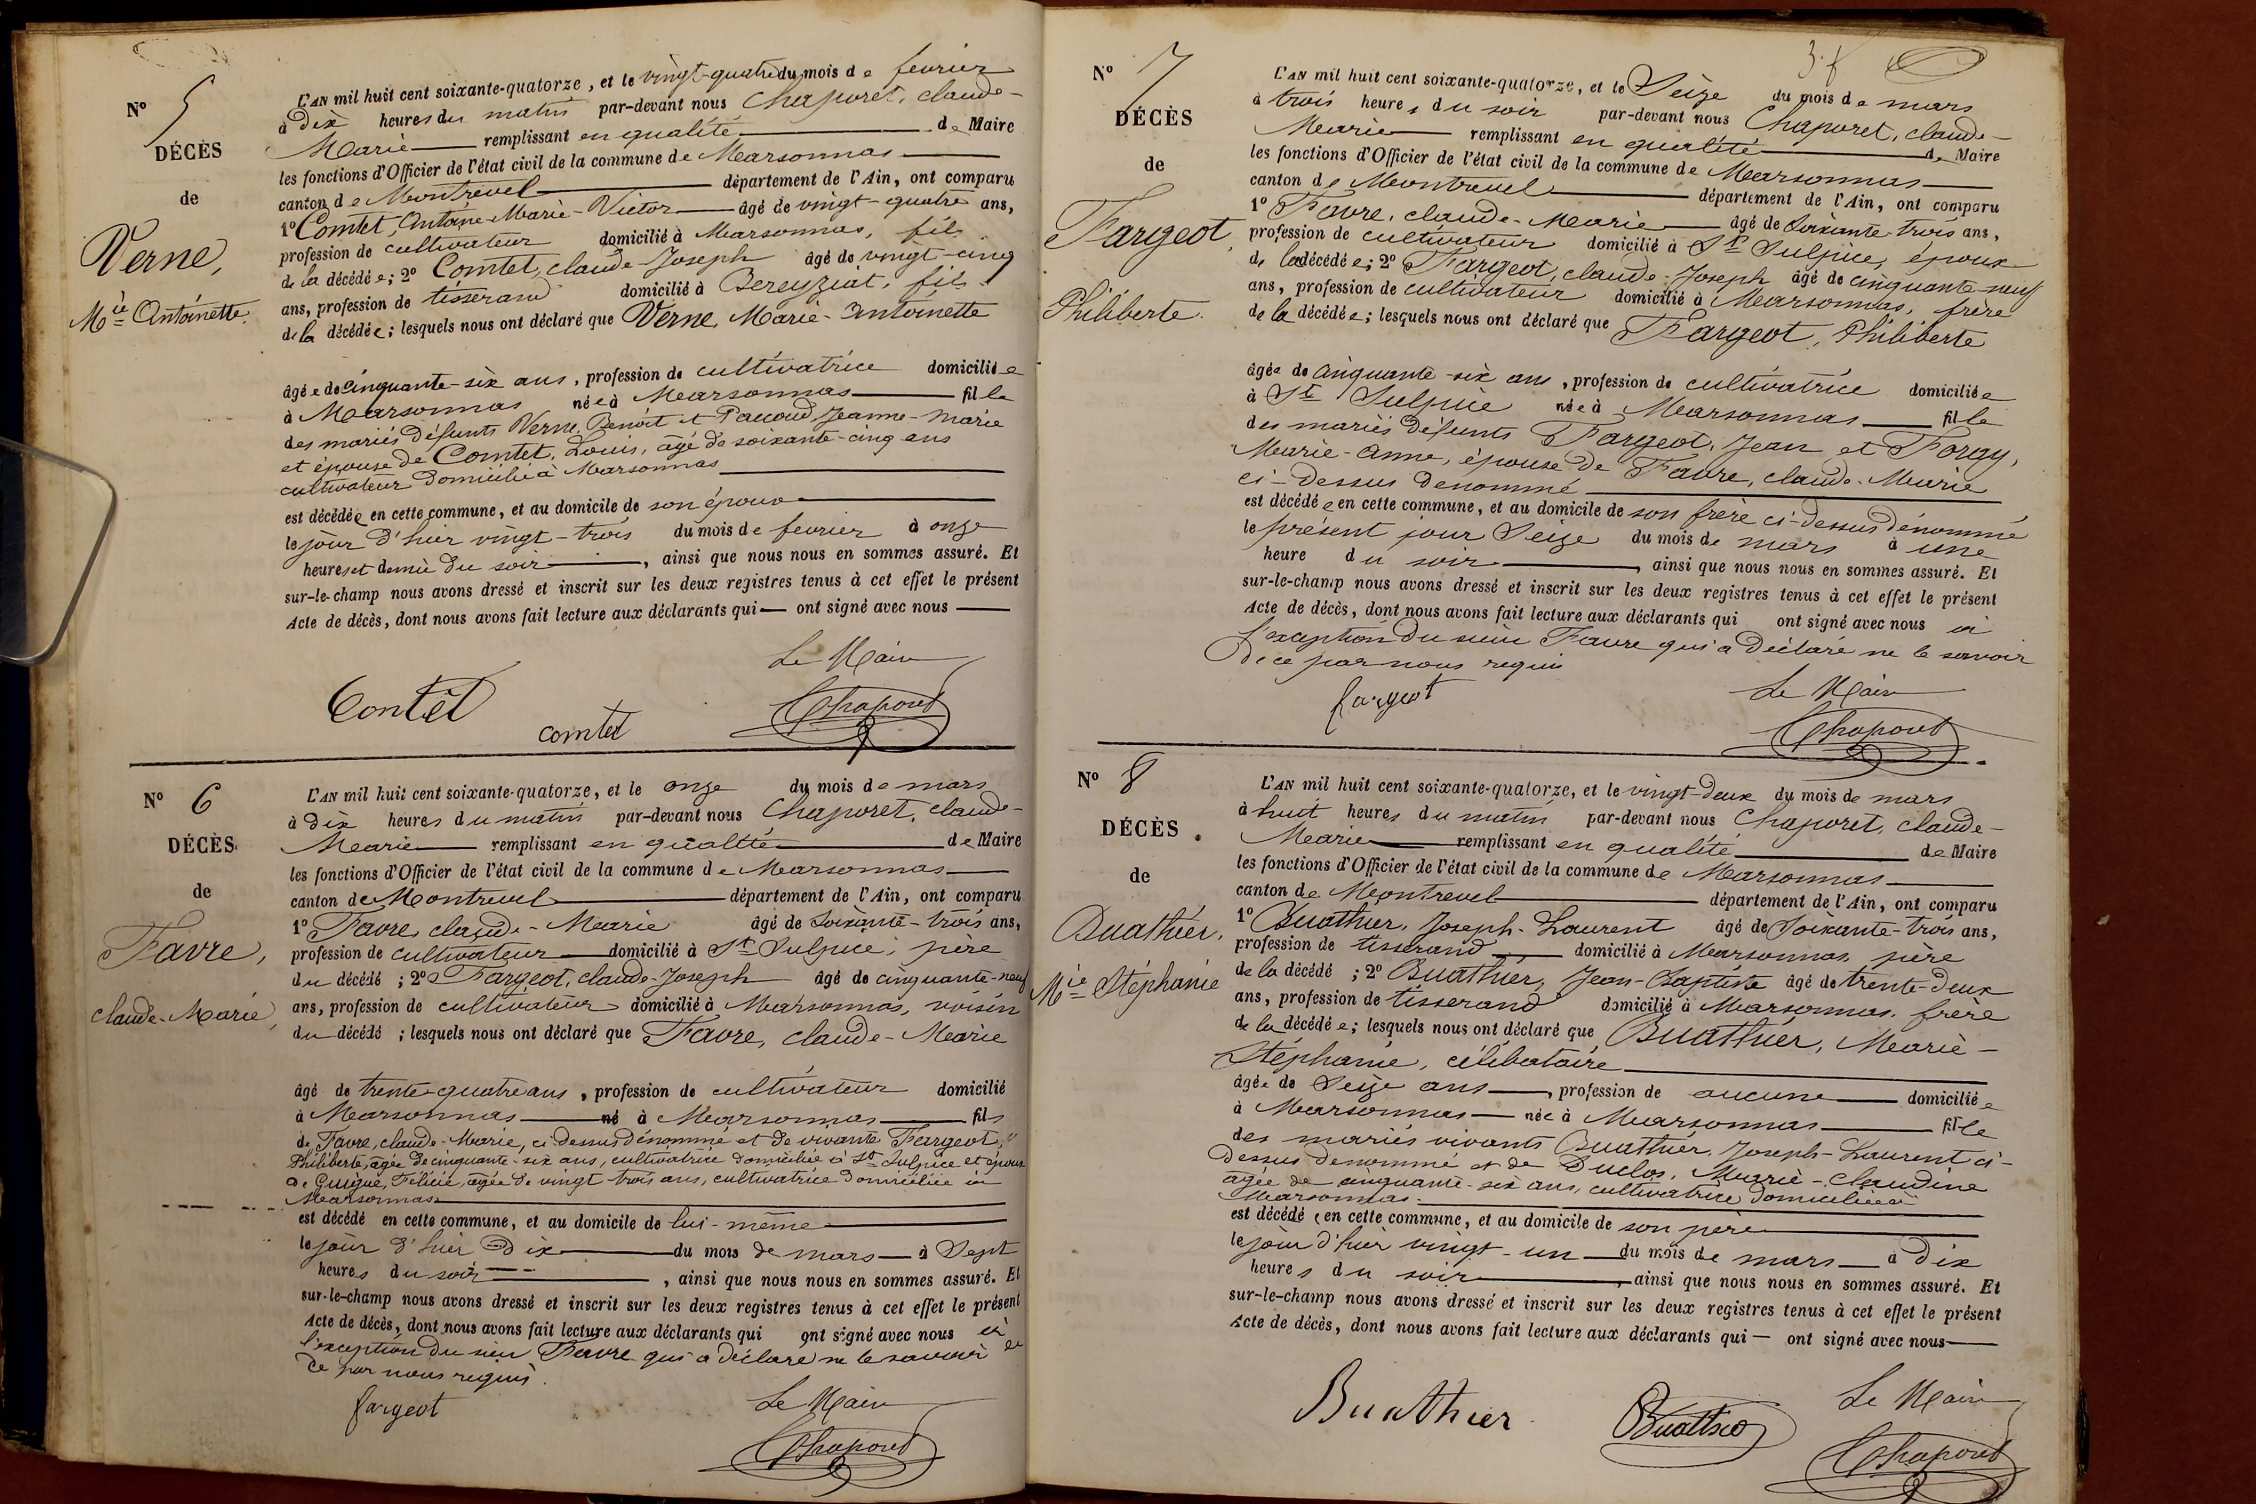 N° 5
DÉCÈS
de
Verne,
M^ie Antoinette.
L'AN mil huit cent soixante-quatorze, et le vingt-quatre du mois de fevrier
à Dix heures du matin par-devant nous Chaporet, claude-
Marie remplissant en qualité de Maire
les fonctions d'Officier de l'état civil de la commune de Marsonnas
canton de Montrevel département de l'Ain, ont comparu
1° Comtet, Antoine-Marie-Victor âgé de vingt-quatre ans,
profession de cultivateur domicilié à Marsonnas, fils
de la décédée; 2° Comtet, claude-Joseph âgé de vingt-cinq
ans, profession de tisserand domicilié à Bereyziat, fils
de la décédée; lesquels nous ont déclaré que Verne, Marie-Antoinette
âgée de cinquante-six ans, profession de cultivatrice domiciliée
à Marsonnas née à Marsonnas fille
des mariés défunts Verne, Benoît et Pacoud, Jeanne-Marie
et épouse de Comtet, Louis, âgé de soixante-cinq ans
cultivateur domicilié à Marsonnas
est décédée en cette commune, et au domicile de son époux
le jour d'hier vingt-trois du mois de fevrier à onze
heures et demie du soir, ainsi que nous nous en sommes assuré. Et
sur-le-champ nous avons dressé et inscrit sur les deux registres tenus à cet effet le présent
Acte de décès, dont nous avons fait lecture aux déclarants qui ont signé avec nous
Le Maire
Contêt
comtet
Chaporet
N° 6
DÉCÈS
de
Favre,
claude-Marie,
L'AN mil huit cent soixante-quatorze, et le onze du mois de mars
à Dix heures du matin par-devant nous Chaporet, claude-
Marie remplissant en qualité de Maire
les fonctions d'Officier de l'état civil de la commune de Marsonnas
canton de Montrevel département de l'Ain, ont comparu
1° Favre, claude-Marie âgé de Soixante-trois ans,
profession de cultivateur domicilié à S^t Sulpice, père
du décédé; 2° Fargeot, claude-Joseph âgé de cinquante-neuf
ans, profession de cultivateur domicilié à Marsonnas, voisin
du décédé; lesquels nous ont déclaré que Favre, claude-Marie
âgé de trente-quatre ans, profession de cultivateur domicilié
à Marsonnas né à Marsonnas fils
de Favre, claude-Marie, ci-dessus dénommé et de vivante Fargeot,
Philiberte, âgée de cinquante-six ans, cultivatrice domiciliée à S^t Sulpice et époux
de Guigue, Félicie, âgée de vingt trois ans, cultivatrice domiciliée à
Marsonnas
est décédé en cette commune, et au domicile de lui-même
le jour d'hier Dix du mois de mars à Sept
heures du soir, ainsi que nous nous en sommes assuré. Et
sur-le-champ nous avons dressé et inscrit sur les deux registres tenus à cet effet le présent
Acte de décès, dont nous avons fait lecture aux déclarants qui ont signé avec nous à
l'exception du sieur Favre qui a déclaré ne le savoir de
ce par nous requis.
fargeot
Le Maire
Chaporet
N° 7
DÉCÈS
de
Fargeot,
Philiberte.
3. f
L'AN mil huit cent soixante-quatorze, et le Seize du mois de mars
à trois heures du soir par-devant nous Chaporet, claude-
Marie remplissant en qualité de Maire
les fonctions d'Officier de l'état civil de la commune de Marsonnas
canton de Montrevel département de l'Ain, ont comparu
1° Favre, claude-Marie âgé de Soixante-trois ans,
profession de cultivateur domicilié à S^t Sulpice, époux
de la décédée; 2° Fargeot, claude-Joseph âgé de cinquante-neuf
ans, profession de cultivateur domicilié à Marsonnas, frère
de la décédée; lesquels nous ont déclaré que Fargeot, Philiberte
âgée de cinquante-six ans, profession de cultivatrice domiciliée
à S^t Sulpice née à Marsonnas fille
des mariés défunts Fargeot, Jean et Foray,
Marie-Anne, épouse de Favre, claude-Marie
ci-dessus denommé
est décédée en cette commune, et au domicile de son frère ci-dessus dénommé
le présent jour Seize du mois de mars à une
heure du soir, ainsi que nous nous en sommes assuré. Et
sur-le-champ nous avons dressé et inscrit sur les deux registres tenus à cet effet le présent
Acte de décès, dont nous avons fait lecture aux déclarants qui ont signé avec nous à
l'exception du sieur Favre qui a déclaré ne le savoir
de ce par nous requis
fargeot
Le Maire
Chaporet
N° 8
DÉCÈS
de
Buathier,
M^ie Stéphanie
L'AN mil huit cent soixante-quatorze, et le vingt-deux du mois de mars
à huit heures du matin par-devant nous Chaporet, claude-
Marie remplissant en qualité de Maire
les fonctions d'Officier de l'état civil de la commune de Marsonnas
canton de Montrevel département de l'Ain, ont comparu
1° Buathier, Joseph-Laurent âgé de Soixante-trois ans,
profession de tisserand domicilié à Marsonnas, père
de la décédé; 2° Buathier, Jean-Baptiste âgé de trente-deux
ans, profession de tisserand domicilié à Marsonnas, frère
de la décédée; lesquels nous ont déclaré que Buathier, Marie-
Stéphanie, célibataire
âgée de Seize ans, profession de aucune domiciliée
à Marsonnas née à Marsonnas fille
des mariés vivants Buathier, Joseph-Laurent ci-
dessus denommé et de Duclos, Marie-claudine
âgée de cinquante-six ans, cultivatrice domiciliée à
Marsonnas.
est décédée en cette commune, et au domicile de son père
le jour d'hier vingt-un du mois de mars à dix
heures du soir, ainsi que nous nous en sommes assuré. Et
sur-le-champ nous avons dressé et inscrit sur les deux registres tenus à cet effet le présent
Acte de décès, dont nous avons fait lecture aux déclarants qui ont signé avec nous
Le Maire
Buathier
Buathier
Chaporet